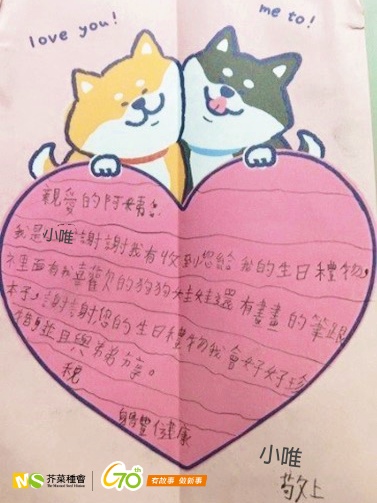 love you!
me to!
親愛的阿姨:
我是小唯謝謝我有收到您給我的生日禮物,
裡面有我喜歡的狗狗娃娃還有畫畫的筆跟
本子,謝謝您的生日禮物我會好好珍
惜,並且與弟弟分享。
祝
身體健康
小唯
敬上
NS 芥菜種會
The Mustard Seed Mission
70th
有故事 做新事